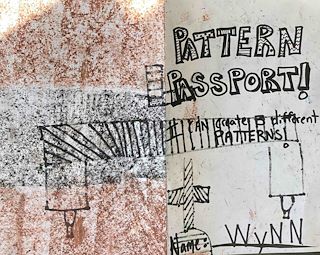 PATTERN
PASSPORT!
I CAN create different
PATTERNS!
Name:
WYNN